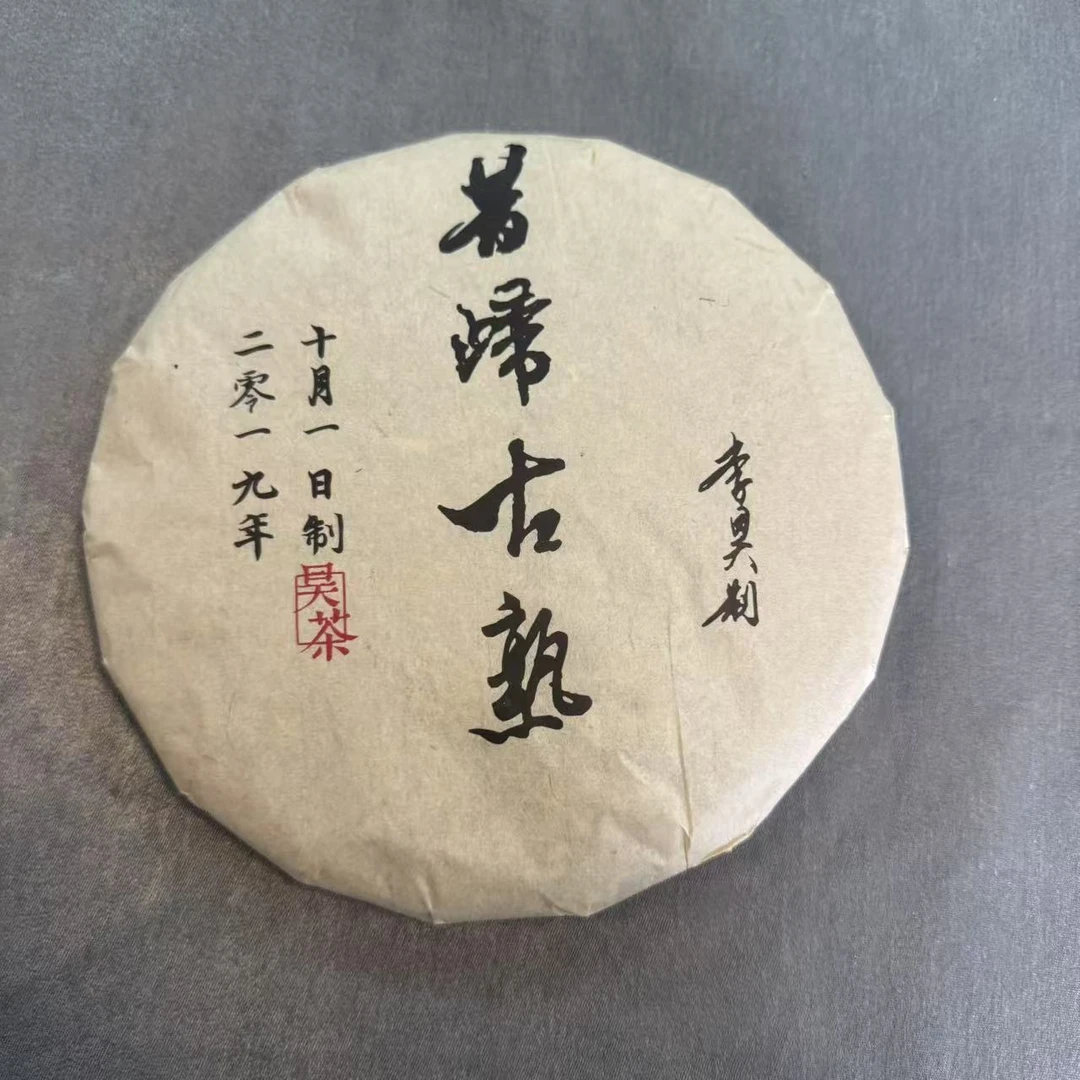 昔歸古熟
二零一九年
十月一日制
昊茶
李昊制